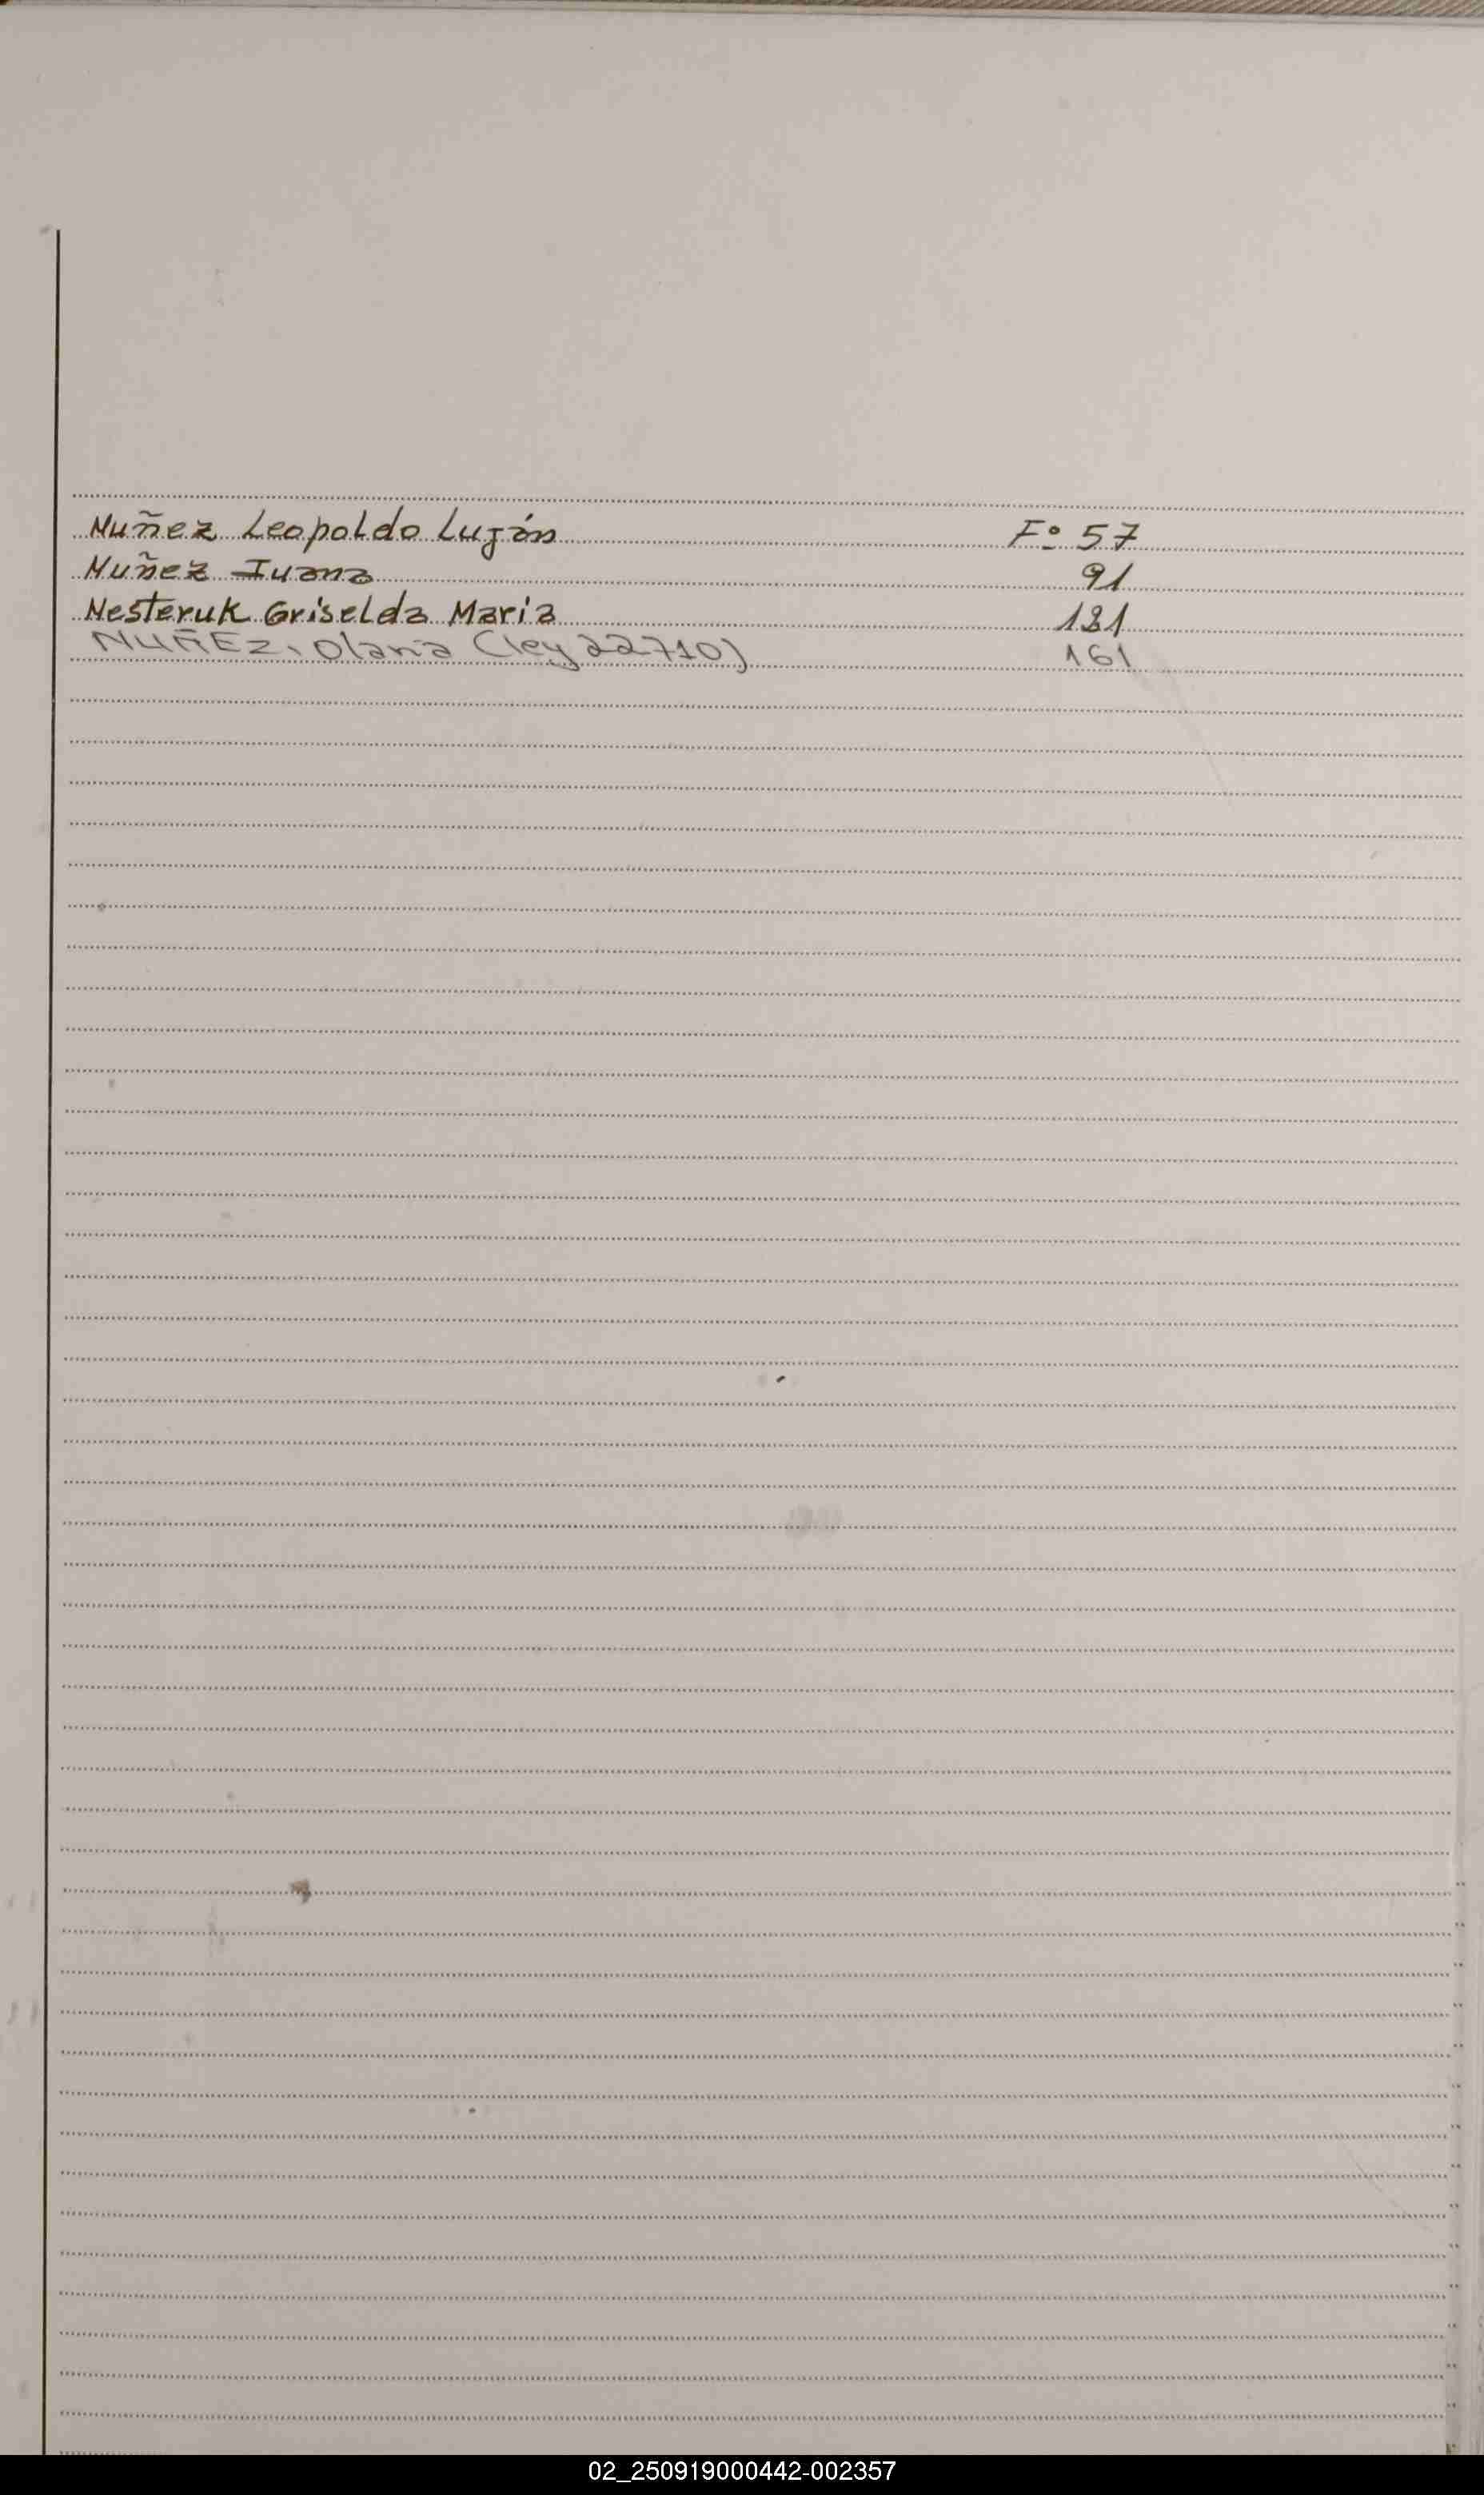 Nuñez Leopoldo Luján Fº 57
Nuñez Juana 91
Nesteruk Griselda Maria 131
NUÑEZ, Olaria (ley 22710) 161
02_250919000442-002357